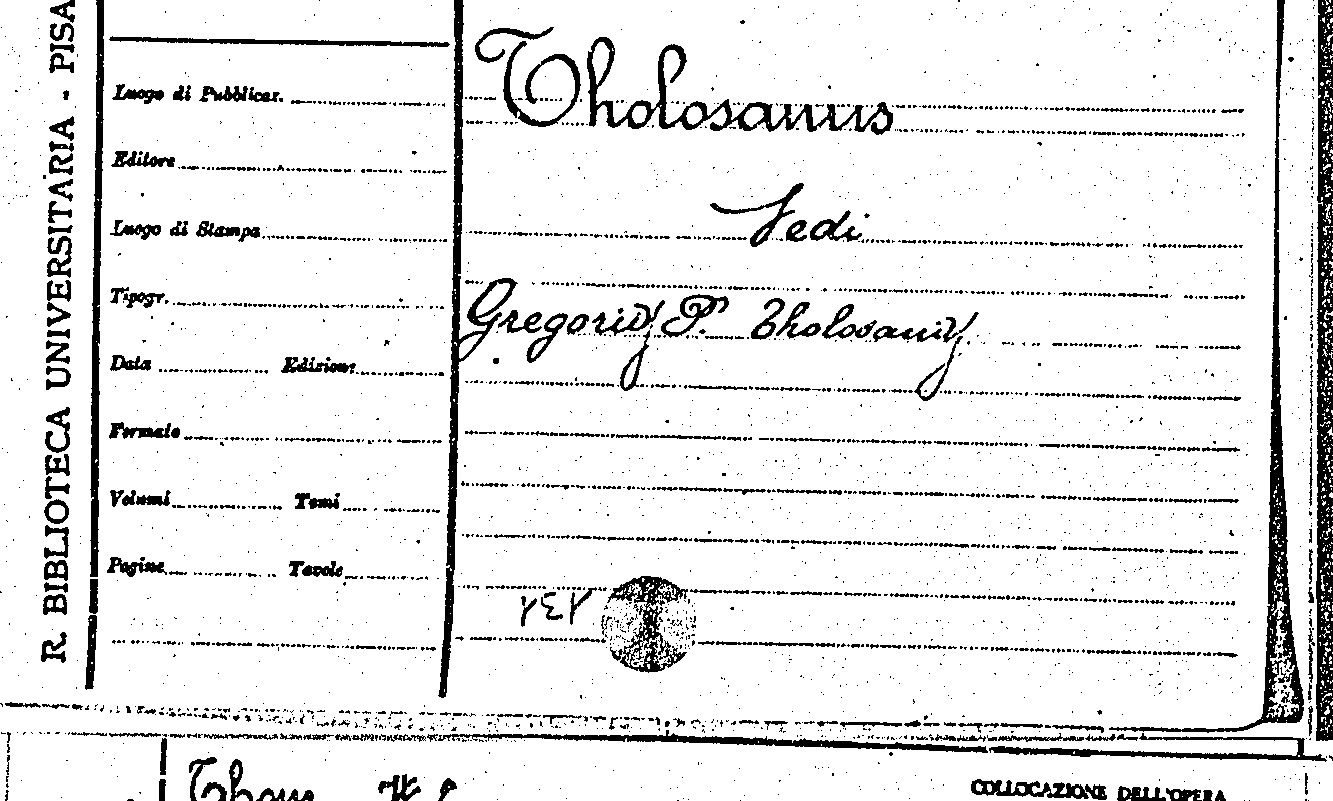 R. BIBLIOTECA UNIVERSITARIA - PISA
Luogo di Pubblicaz.
Editore
Luogo di Stampa
Tipogr.
Data Edizione
Formato
Volumi Tomi
Pagine Tavole
Tholosanus
Vedi
Gregorij P. Tholosanij
COLLOCAZIONE DELL'OPERA